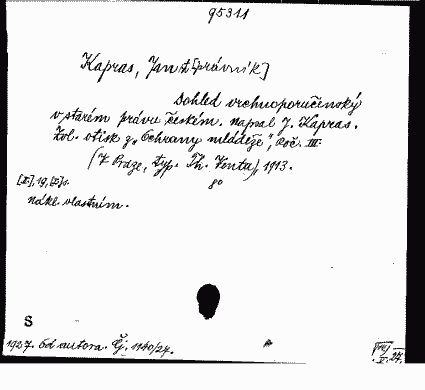 95311
Kapras, Jan st. [právník]
Dohled vrchnoporučenský
v starém právu českém. Napsal J. Kapras.
Zvl. otisk z „Ochrany mládeže", roč. III.
(V Praze, typ. Th. Venta), 1913.
8°
Nákl. vlastním.
S
1927. Od autora. Č. 1140/27.